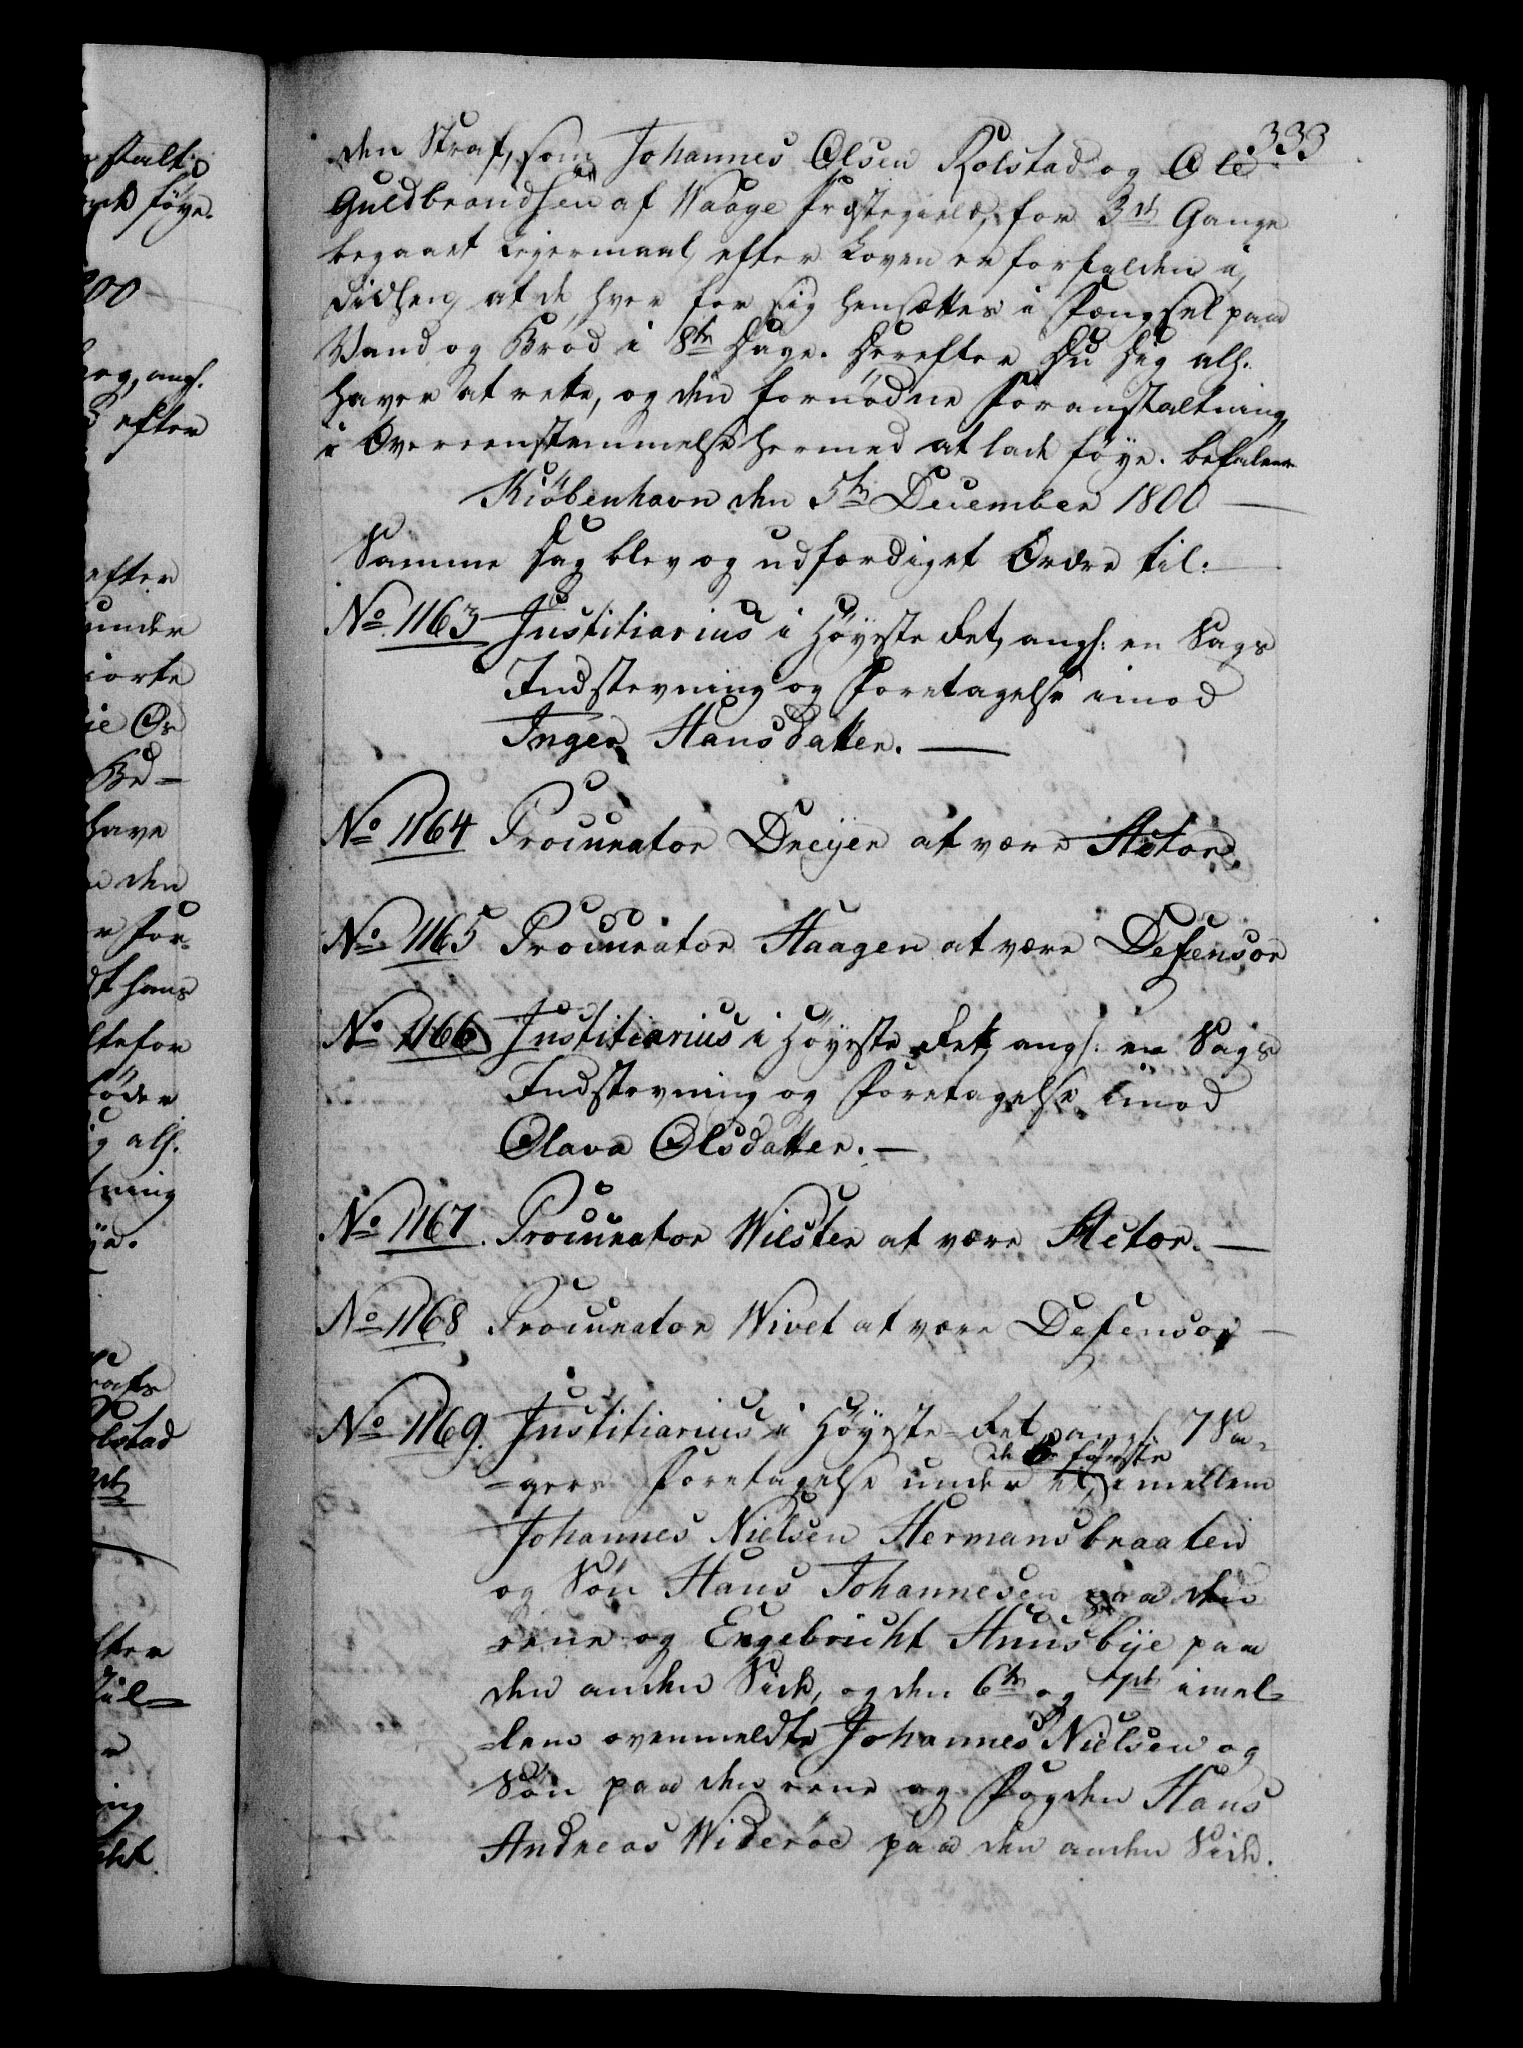 333
den Straf, som Johannes Olsen Rolstad og Ole
Guldbrandsen af Waage Præstegield, for 3de Gange
begaaet Leyermaal, efter Loven er forfalden i,
saaledes at de hver for sig hensættes i Fængsel paa
Vand og Brød i 8te Dage. Herefter Du Dig alh.
haver at rette, og den fornødne Foranstaltning
i Overeensstemmelse hermed at lade føye. befalende
Kiøbenhavn den 5te December 1800
Samme Dag blev og udfærdiget Ordre til:
No 1163 Justitiarius i Høyeste Ret, angl: en Sags
Indstevning og Foretagelse imod
Inger Hansdatter.
No 1164 Procurator Dreyer at være Actor.
No 1165 Procurator Haagen at være Defensor
No 1166 Justitiarius i Høyeste Ret, angl: en Sags
Indstevning og Foretagelse imod
Olava Olsdatter.
No 1167. Procurator Wilster at være Actor.
No 1168 Procurator Wivet at være Defensor
No 1169. Justitiarius i Høyeste-Ret, angl. 7 Sa-
de første
-gers Foretagelse under et, imellem
Johannes Nielsen Hermansbraaten
og Søn Hans Johannesen paa den
eene og Engebricht Huusbye paa
den anden Side, og den 6te og 7de imel-
-lem ovenmeldte Johannes Nielsen og
Søn paa den eene og Fogden Hans
Andreas Widerøe paa den anden Side.